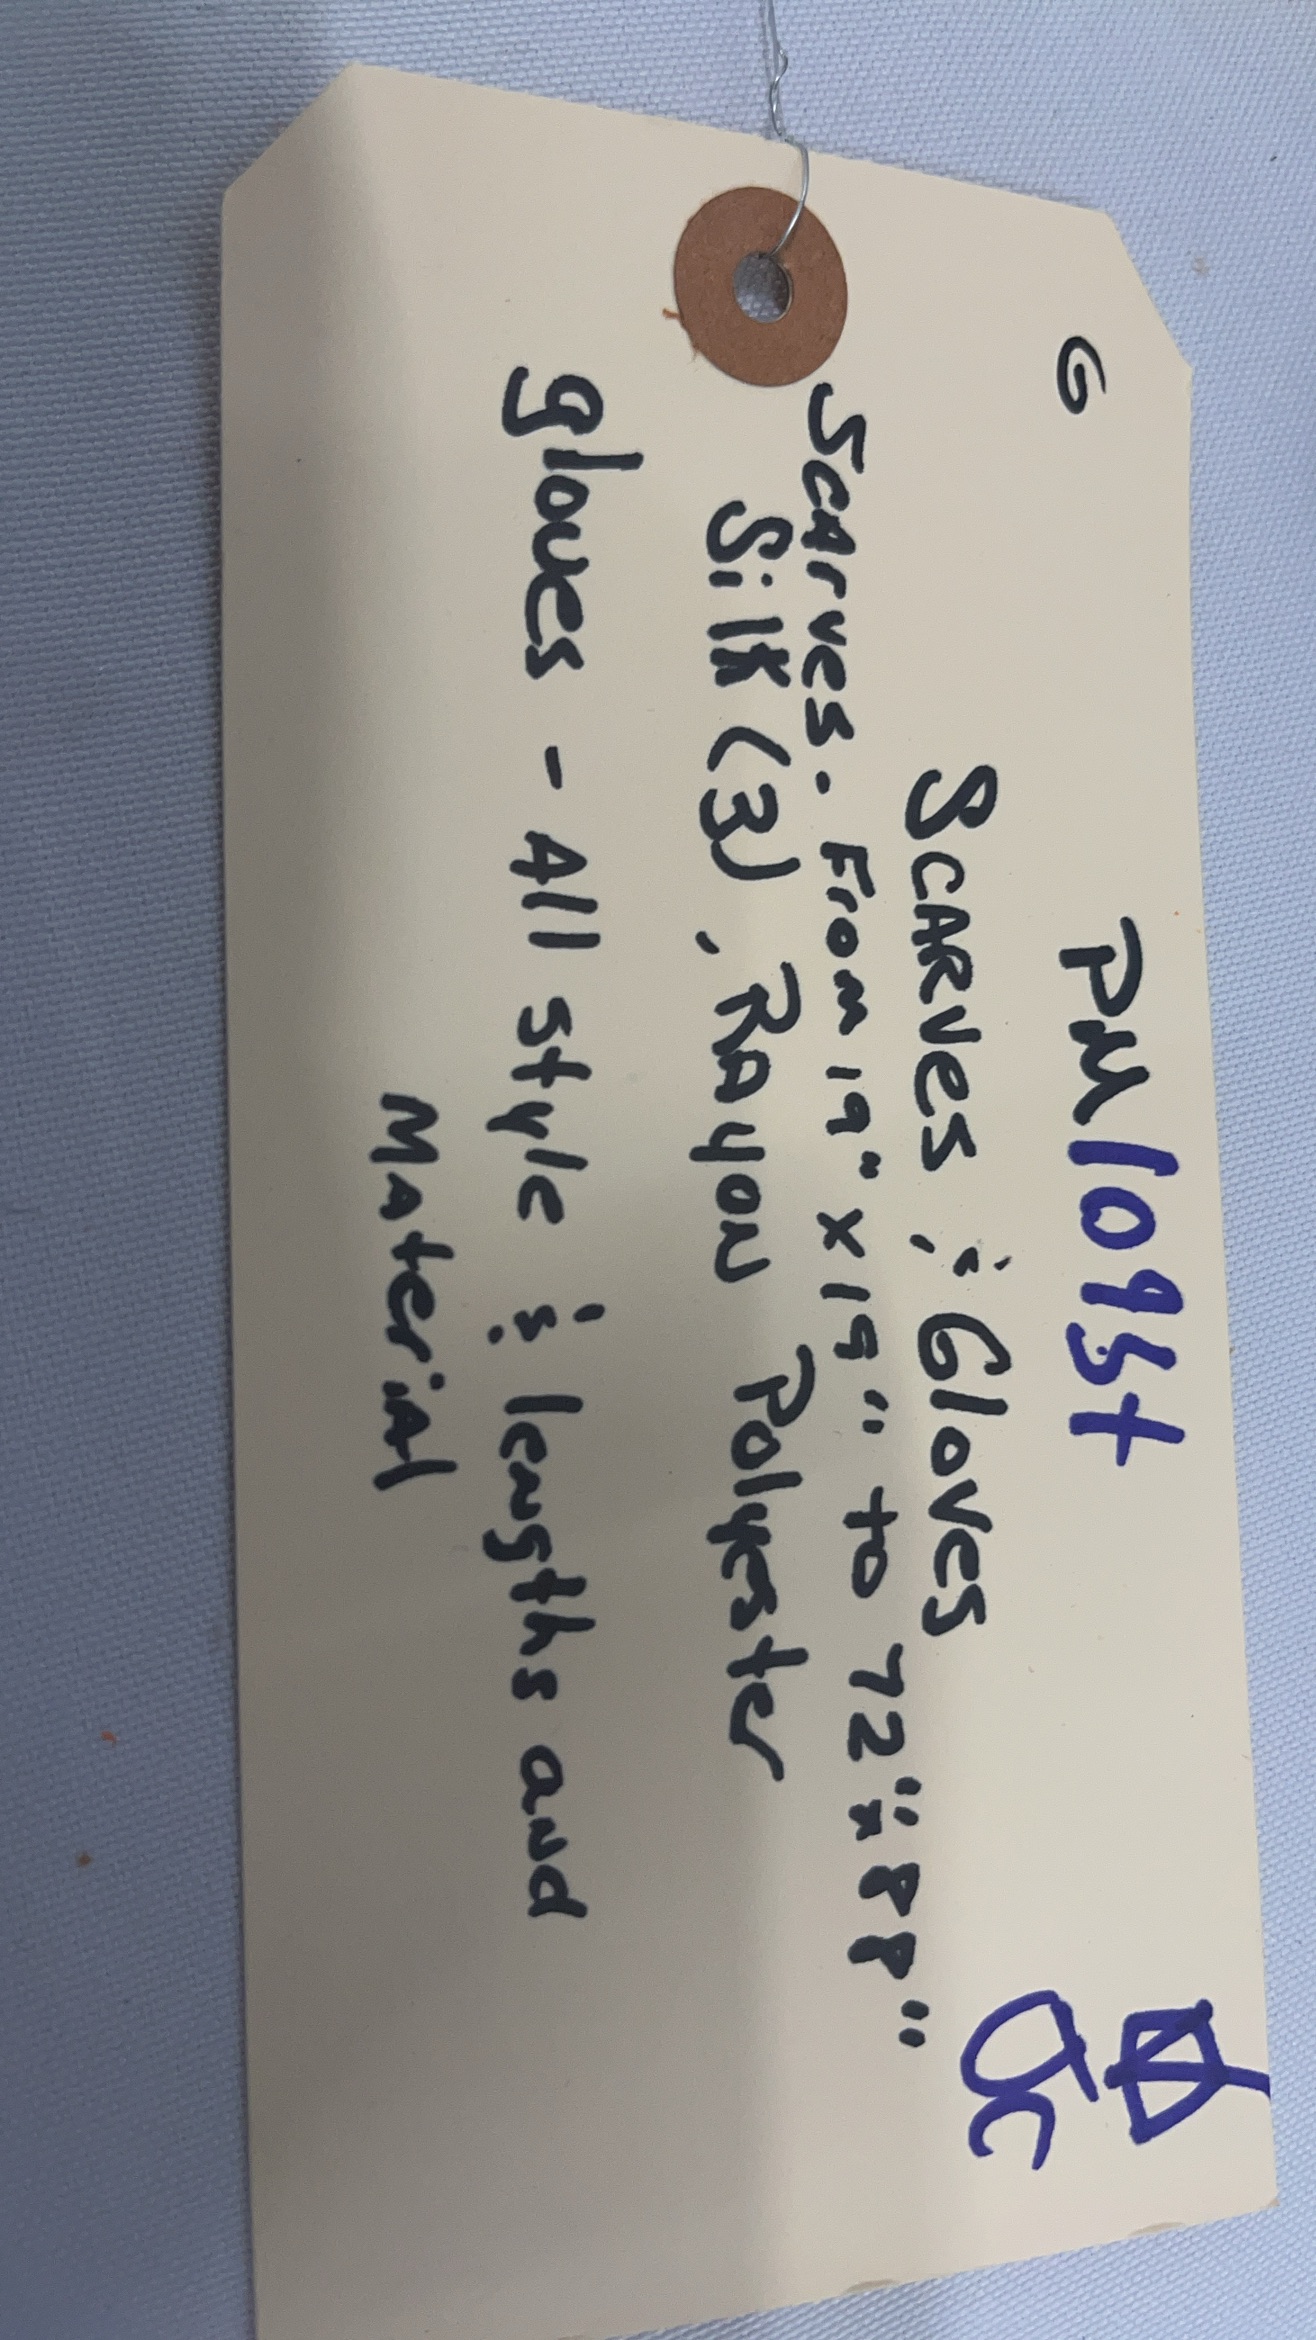 G
PM1095+
Scarves & Gloves
Scarves. From 19" x 19" to 72" x 88"
Silk (3), Rayon Polyester
gloves - All style & lengths and
Material
JC